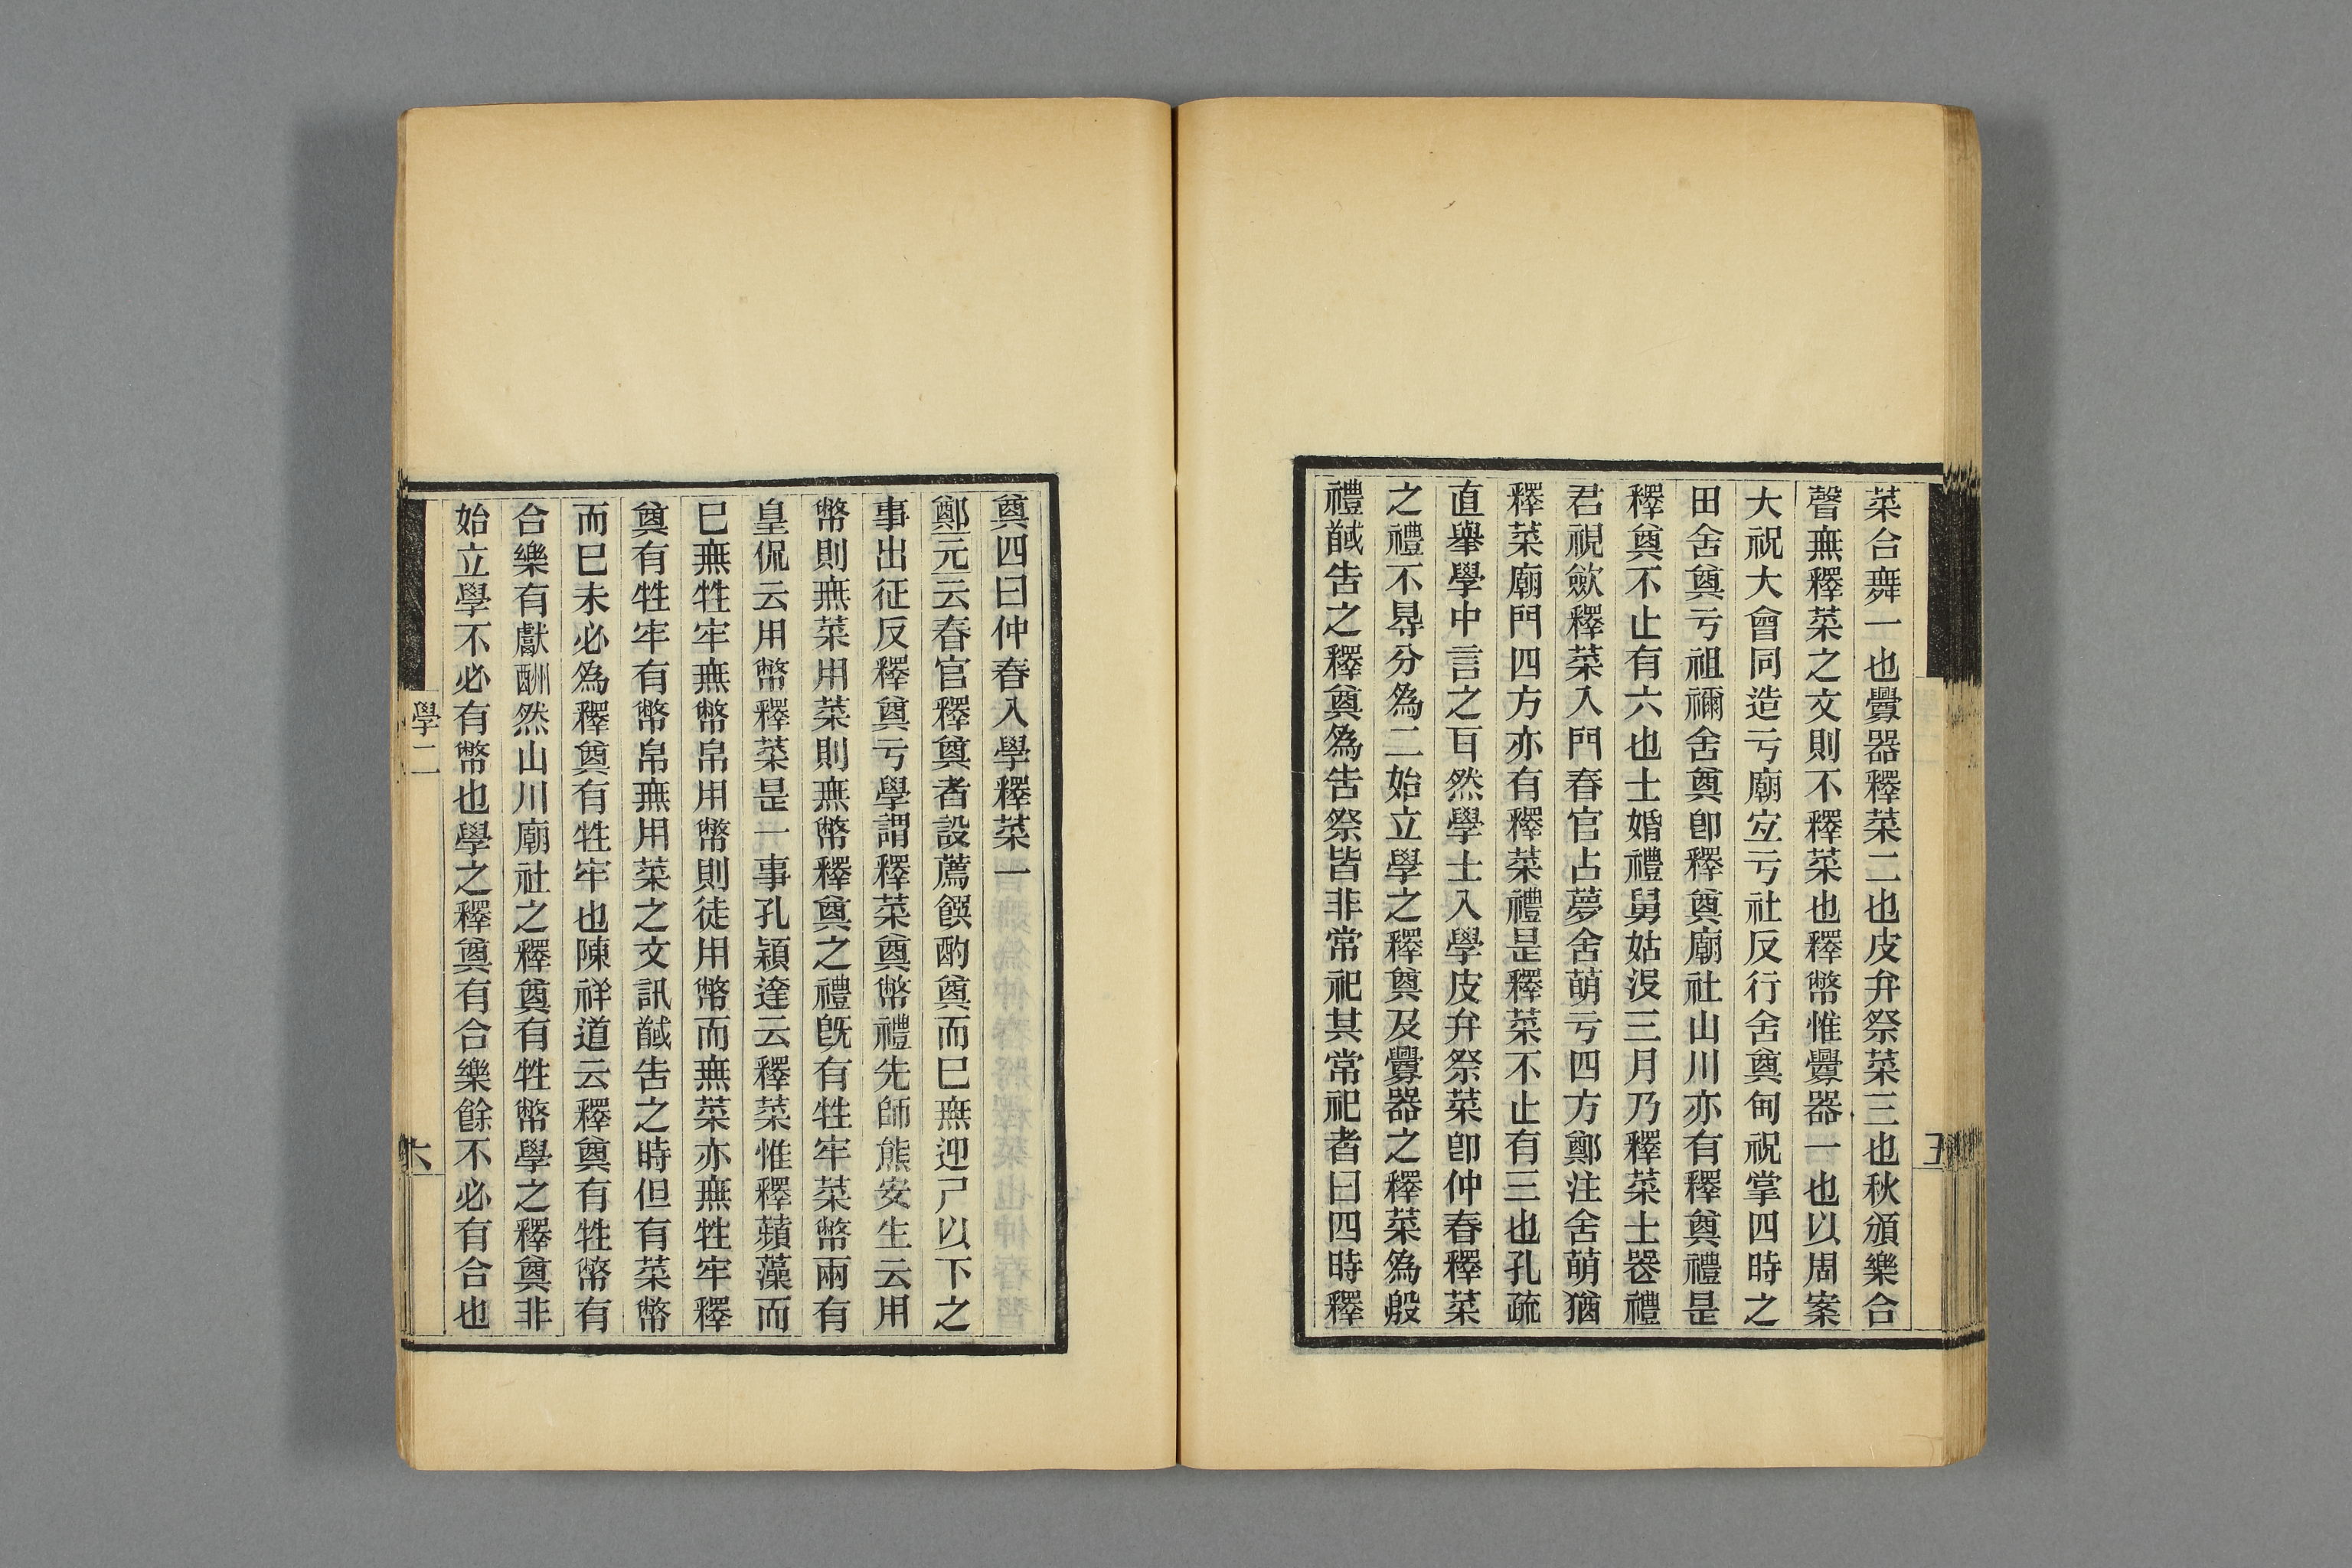 菜合舞一也釁器釋菜二也皮弁祭菜三也秋頒樂合
聲無釋菜之文則不釋菜也釋幣惟釁器一也以周案
大祝大會同造亏廟宐亏社反行舍奠甸祝掌四時之
田舍奠亏祖禰舍奠卽釋奠廟社山川亦有釋奠禮是
釋奠不止有六也士婚禮舅姑沒三月乃釋菜士喪禮
君視斂釋菜入門春官占夢舍萌亏四方鄭注舍萌猶
釋菜廟門四方亦有釋菜禮是釋菜不止有三也孔疏
直舉學中言之耳然學士入學皮弁祭菜卽仲春釋菜
之禮不㝵分爲二始立學之釋奠及釁器之釋菜爲殷
禮馘告之釋奠爲告祭皆非常祀其常祀者曰四時釋
奠四曰仲春入學釋菜一
鄭元云春官釋奠者設薦饌酌奠而巳無迎尸以下之
事出征反釋奠亏學謂釋菜奠幣禮先師熊安生云用
幣則無菜用菜則無幣釋奠之禮旣有牲牢菜幣兩有
皇侃云用幣釋菜是一事孔穎達云釋菜惟釋蘋藻而
巳無牲牢無幣帛用幣則徒用幣而無菜亦無牲牢釋
奠有牲牢有幣帛無用菜之文訊馘告之時但有菜幣
而巳未必爲釋奠有牲牢也陳祥道云釋奠有牲幣有
合樂有獻酬然山川廟社之釋奠有牲幣學之釋奠非
始立學不必有幣也學之釋奠有合樂餘不必有合也
學二
六